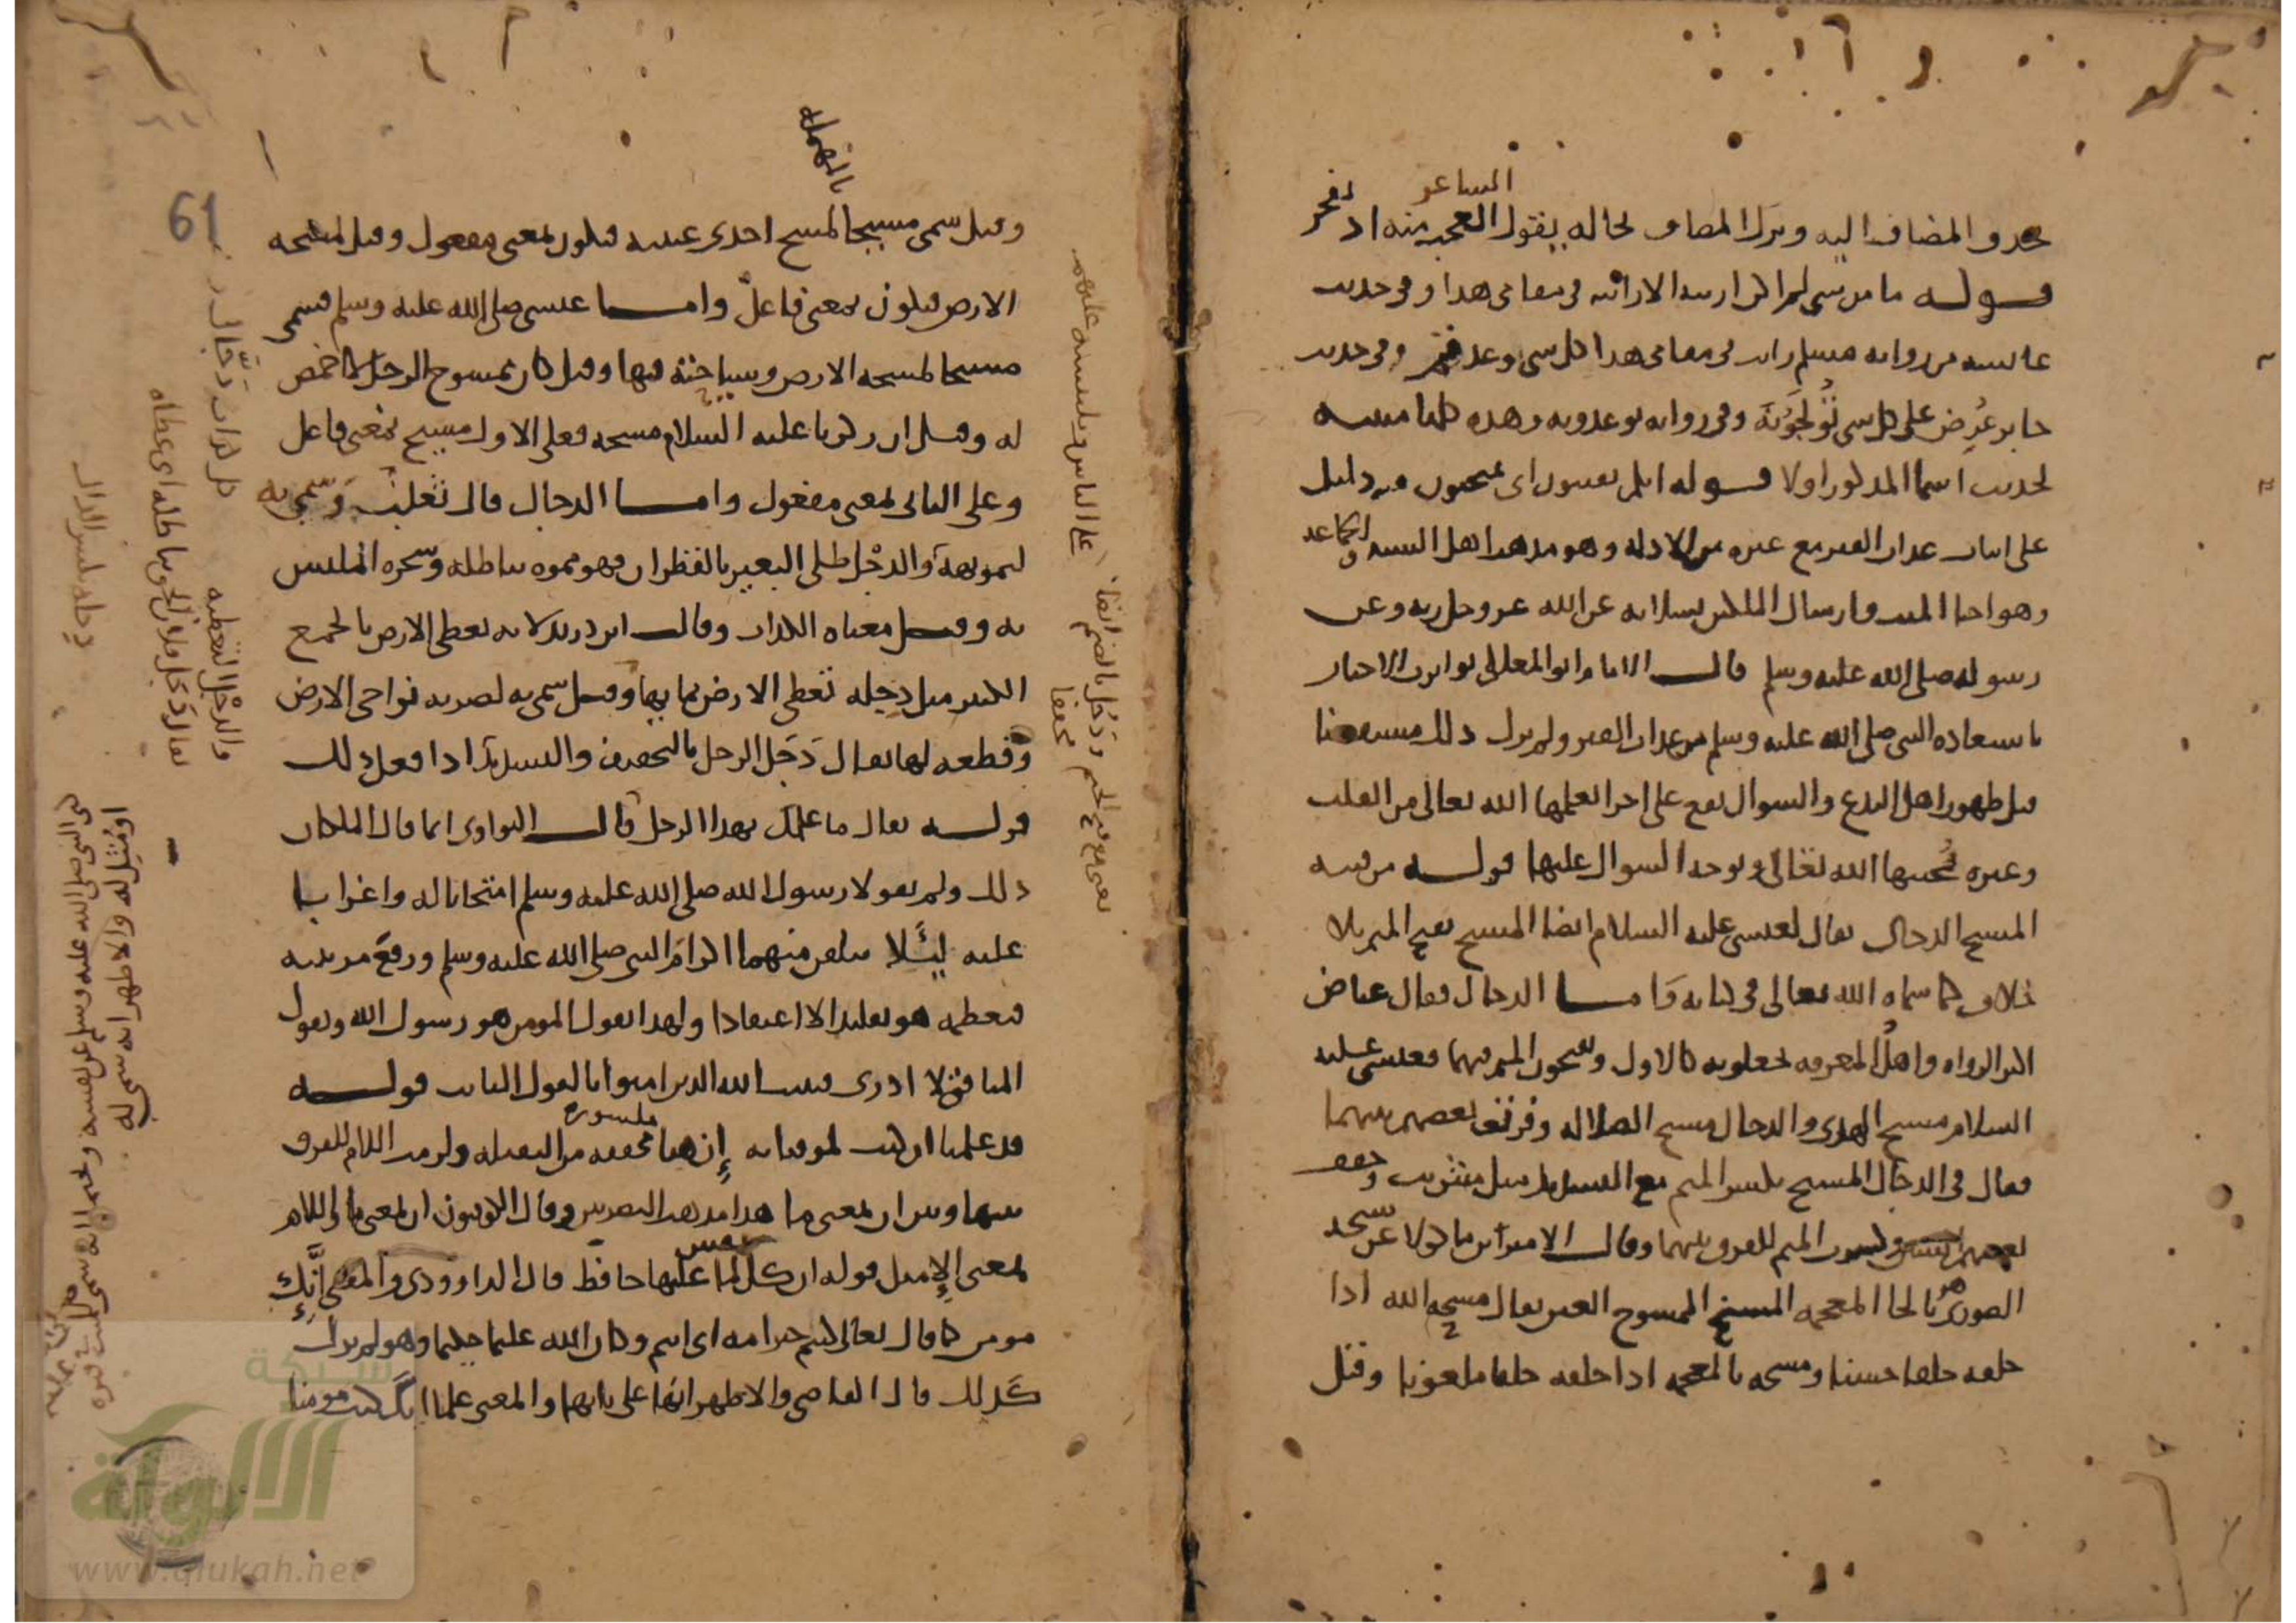 حذف المضاف اليه وترك المضاف لحاله يقول العجب منه اذ يفخر
الشاعر
قوله ما من شي لم اكن اريته الا رايته في مقامي هذا وفي حديث
عايشة من رواية مسلم رايت في مقامي هذا كل شي وعدتم وفي حديث
جابر عُرِض علي كل شي تُولَجُونَه وفي رواية توعدونه وهذه كلها
لحديث اسما المذكور اولا قوله انكم تفتنون اي تمتحنون فيه دليل
على اثبات عذاب القبر مع غيره من الادلة وهو مذهب اهل السنة والجماعة
وهو احيا الميت وارسال الملكين يسلانه عن الله عز وجل ربه وعن
رسوله صلى الله عليه وسلم قال الامام ابو المعالي تواترت الاخبار
باستعاذة النبي صلى الله عليه وسلم من عذاب القبر ولم يزل ذلك مستفيضا
قبل ظهور اهل البدع والسوال يقع على اجزا يعلمها الله تعالى من القلب
وغيره يُحييها الله تعالى ويوجه السوال عليها قوله من فتنة
المسيح الدجال يقال لعيسى عليه السلام ايضا المسيح بفتح الميم بلا
خلاف كما سماه الله تعالى في كتابه وَاما الدجال فقال عياض
اكثر الرواة واهل المعرفة يجعلونه كالاول ويفتحون الميم فيهما فعيسى عليه
السلام مسيح الهدى والدجال مسيح الضلالة وفرق بعضهم بينهما
فقال في الدجال المسيح بكسر الميم مع التشديد مثل شريب وخفف
بعضهم وكسرت الميم للفرق بينهما وقال الامير ابن ماكولا عن شيخه
الصوري هو بالخا المعجمة المسيخ الممسوح العين يقال مسحه الله اذا
خلقه خلقا حسنا ومسخه بالمعجمة اذا خلقه خلقا ملعونا وقيل
61
بالمهملة
وقيل سمي مسيحا لمسح احدى عينيه فيكون بمعنى مفعول وقيل لمسحه
الارض فيكون بمعنى فاعل واما عيسى صلى الله عليه وسلم فسمي
مسيحا لمسحه الارض وسياحته فيها وقيل كان ممسوح الرجل لا اخمص
له وقيل ان زكريا عليه السلام مسحه فعلى الاول مسيح بمعنى فاعل
وعلى الثاني بمعنى مفعول واما الدجال قال ثعلب وَسُمّي به
لتمويهه والدجْل طلي البعير بالقطران فهو مموه بباطله وسحره الملبس
به وقيل معناه الكذاب وقال ابن دريد لانه يغطي الارض بالجمع
الكثير مثل دِجله تغطي الارض بمايها وقيل سمي به لضربه نواحي الارض
وقطعه لها يقال دَجَل الرجل بالتخفيف والتشديد اذا فعل ذلك
قوله يقال ما علمك بهذا الرجل قال النواوي انما قال الملكان
ذلك ولم يقولا رسول الله صلى الله عليه وسلم امتحانا له واغرابا
عليه لِئَلا يتلقن منهما اكرام النبي صلى الله عليه وسلم ورفع مرتبته
فيعظمه هو تقليدا لا اعتقادا ولهذا يقول المومن هو رسول الله ويقول
المنافق لا ادري فيثبت الله الذين امنوا بالقول الثابت قوله
قد علمنا ان كنت لموقنا به إِن هنا مخففة من الثقيلة ولزمت اللام للفرق
مكسورة
بينها وبين ان بمعنى ما هذا مذهب البصريين وقال الكوفيون ان بمعنى ما واللام
بمعنى الا مثل قوله ان كل نفس لما عليها حافظ قال الداوودي والمعنى اِنَّك
مومن كما قال تعالى كنتم خير امة اي انتم وكان الله عليما حكيما وهو لم يزل
كَذلك قال القاضي والاظهر انها على بابها والمعنى علمنا انك كنت مومنا
كل كذاب دَجَّال
والدجْل التغطية
على الناس ويلبسه عليهم
ودَجُل بالضم ايضا
مخففا
او مُثِّل له والاظهر انه سمي له